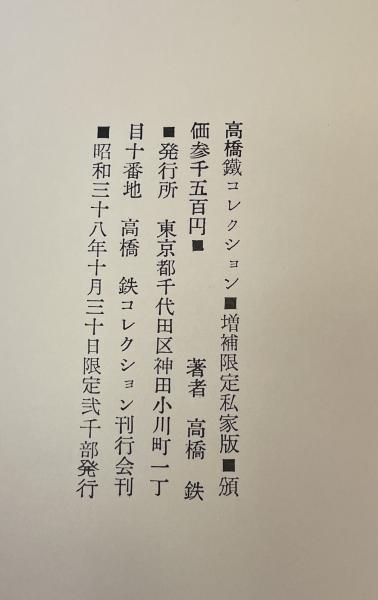 高橋鐵コレクション■増補限定私家版■頒
価参千五百円■　著者　高橋　鉄
■発行所　東京都千代田区神田小川町一丁
目十番地　高橋　鉄コレクション刊行会刊
■昭和三十八年十月三十日限定弐千部発行